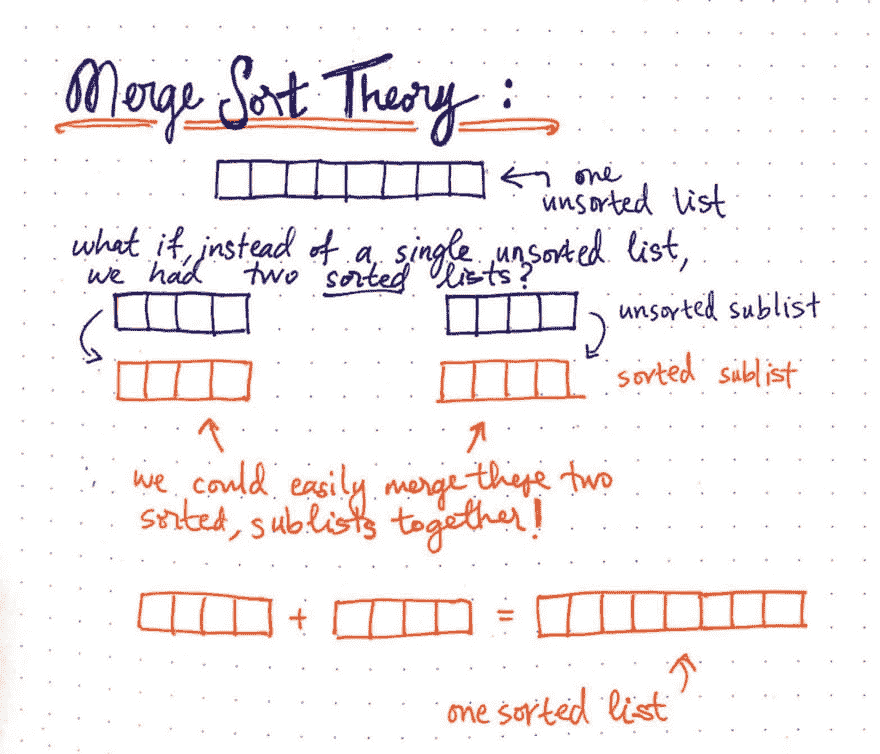 Merge Sort Theory:
one
unsorted list
what if, instead of a single unsorted list,
we had two sorted lists?
unsorted sublist
sorted sublist
we could easily merge these two
sorted, sublists together!
+ =
one sorted list